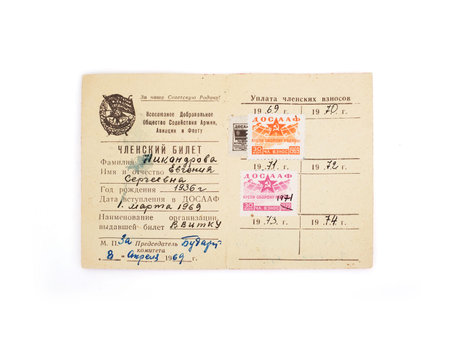 За нашу Советскую Родину!
Всесоюзное Добровольное
Общество Содействия Армии,
Авиации и Флоту
ЧЛЕНСКИЙ БИЛЕТ
Фамилия Никандрова
Имя и отчество Евгения
Сергеевна
Год рождения 1936г
Дата вступления в ДОСААФ
1. марта 1969
Наименование организации,
выдавшей билет ВВИТКУ
М. П. За Председатель
комитета
8 Апреля 1969 г.
Уплата членских взносов
1969 г. 1970 г.
ДОСААФ
КРЕПИ ОБОРОНУ
1971 г. 1972 г.
ДОСААФ
КРЕПИ ОБОРОНУ
1971
1973 г. 1974 г.